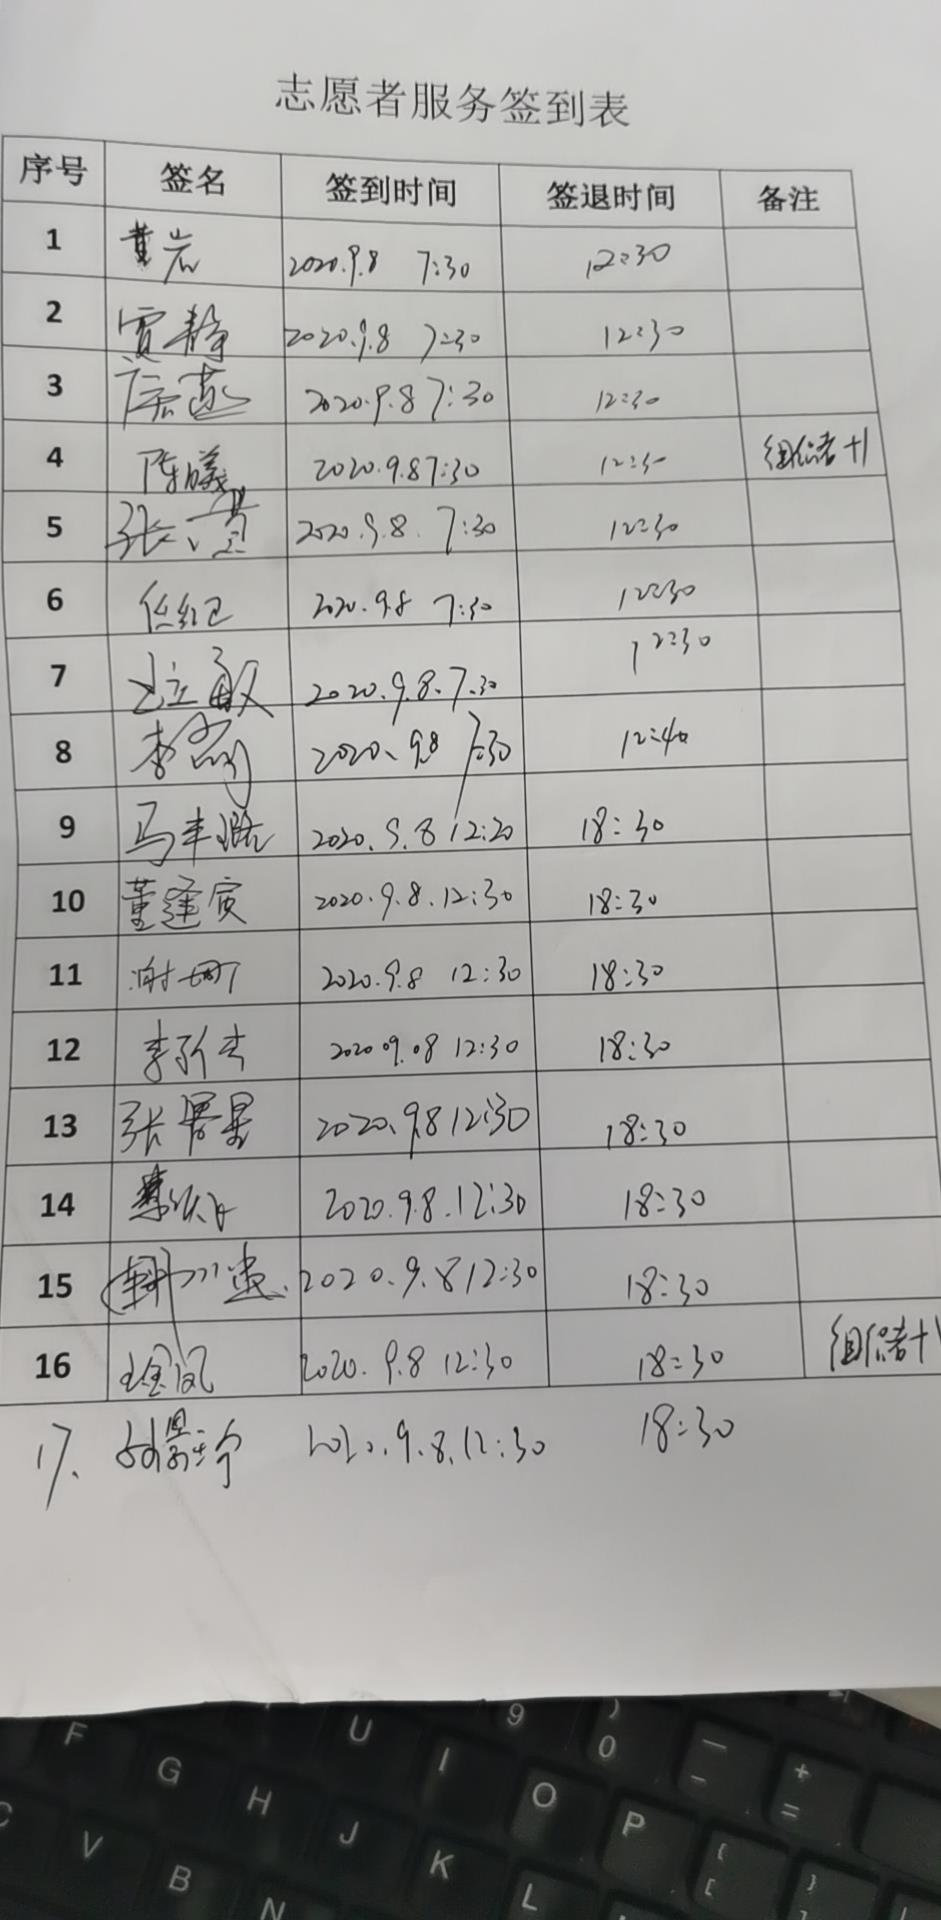 志愿者服务签到表
序号 签名 签到时间 签退时间 备注
1 黄岩 2020.9.8 7:30 12:30
2 贾静 2020.9.8 7:30 12:30
3 2020.9.8 7:30 12:30
4 陈曦 2020.9.8 7:30 12:30 组织者+1
5 张 2020.9.8. 7:30 12:30
6 任红卫 2020.9.8 7:30 12:30
7 敏 2020.9.8.7.30 12:30
8 李 2020、9.8 7:30 12:40
9 马丰 2020.9.8 12:20 18:30
10 董逢寅 2020.9.8.12:30 18:30
11 谢 2020.9.8 12:30 18:30
12 李 2020 09.08 12:30 18:30
13 张 2020.9.8 12:30 18:30
14 2020.9.8.12:30 18:30
15 2020.9.8 12:30 18:30
16 金凤 2020.9.8 12:30 18:30 组织者+1
17. 2020.9.8.12:30 18:30
F G H J K L
U I O P
C V B N
9 ) 0 — - + =
{ [ } ]